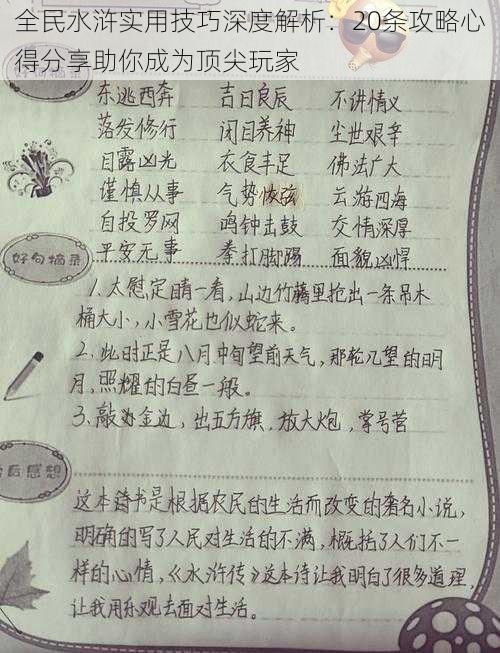 全民水浒实用技巧深度解析：20条攻略心
得分享助你成为顶尖玩家
东逃西奔 吉日良辰 不讲情义
落发修行 闭目养神 尘世艰辛
目露凶光 衣食丰足 佛法广大
谨慎从事 气势恢弦 云游四海
自投罗网 鸣钟击鼓 交情深厚
平安无事 拳打脚踢 面貌凶悍
好句摘录
1.太慰定睛一看，山边竹藕里抢出一条吊木
桶大小，小雪花也似蛇来。
2.此时正是八月中旬望前天气，那轮几望的明
月，照耀的白昼一般。
3、敲边金边，出五方旗，放大炮，掌号营
后感想
这本书是根据农民的生活而改变的著名小说，
明确的写了人民对生活的不满，概括了人们不一
样的心情，《水浒传》这本诗让我明白了很多道理，
让我用乐观去面对生活。